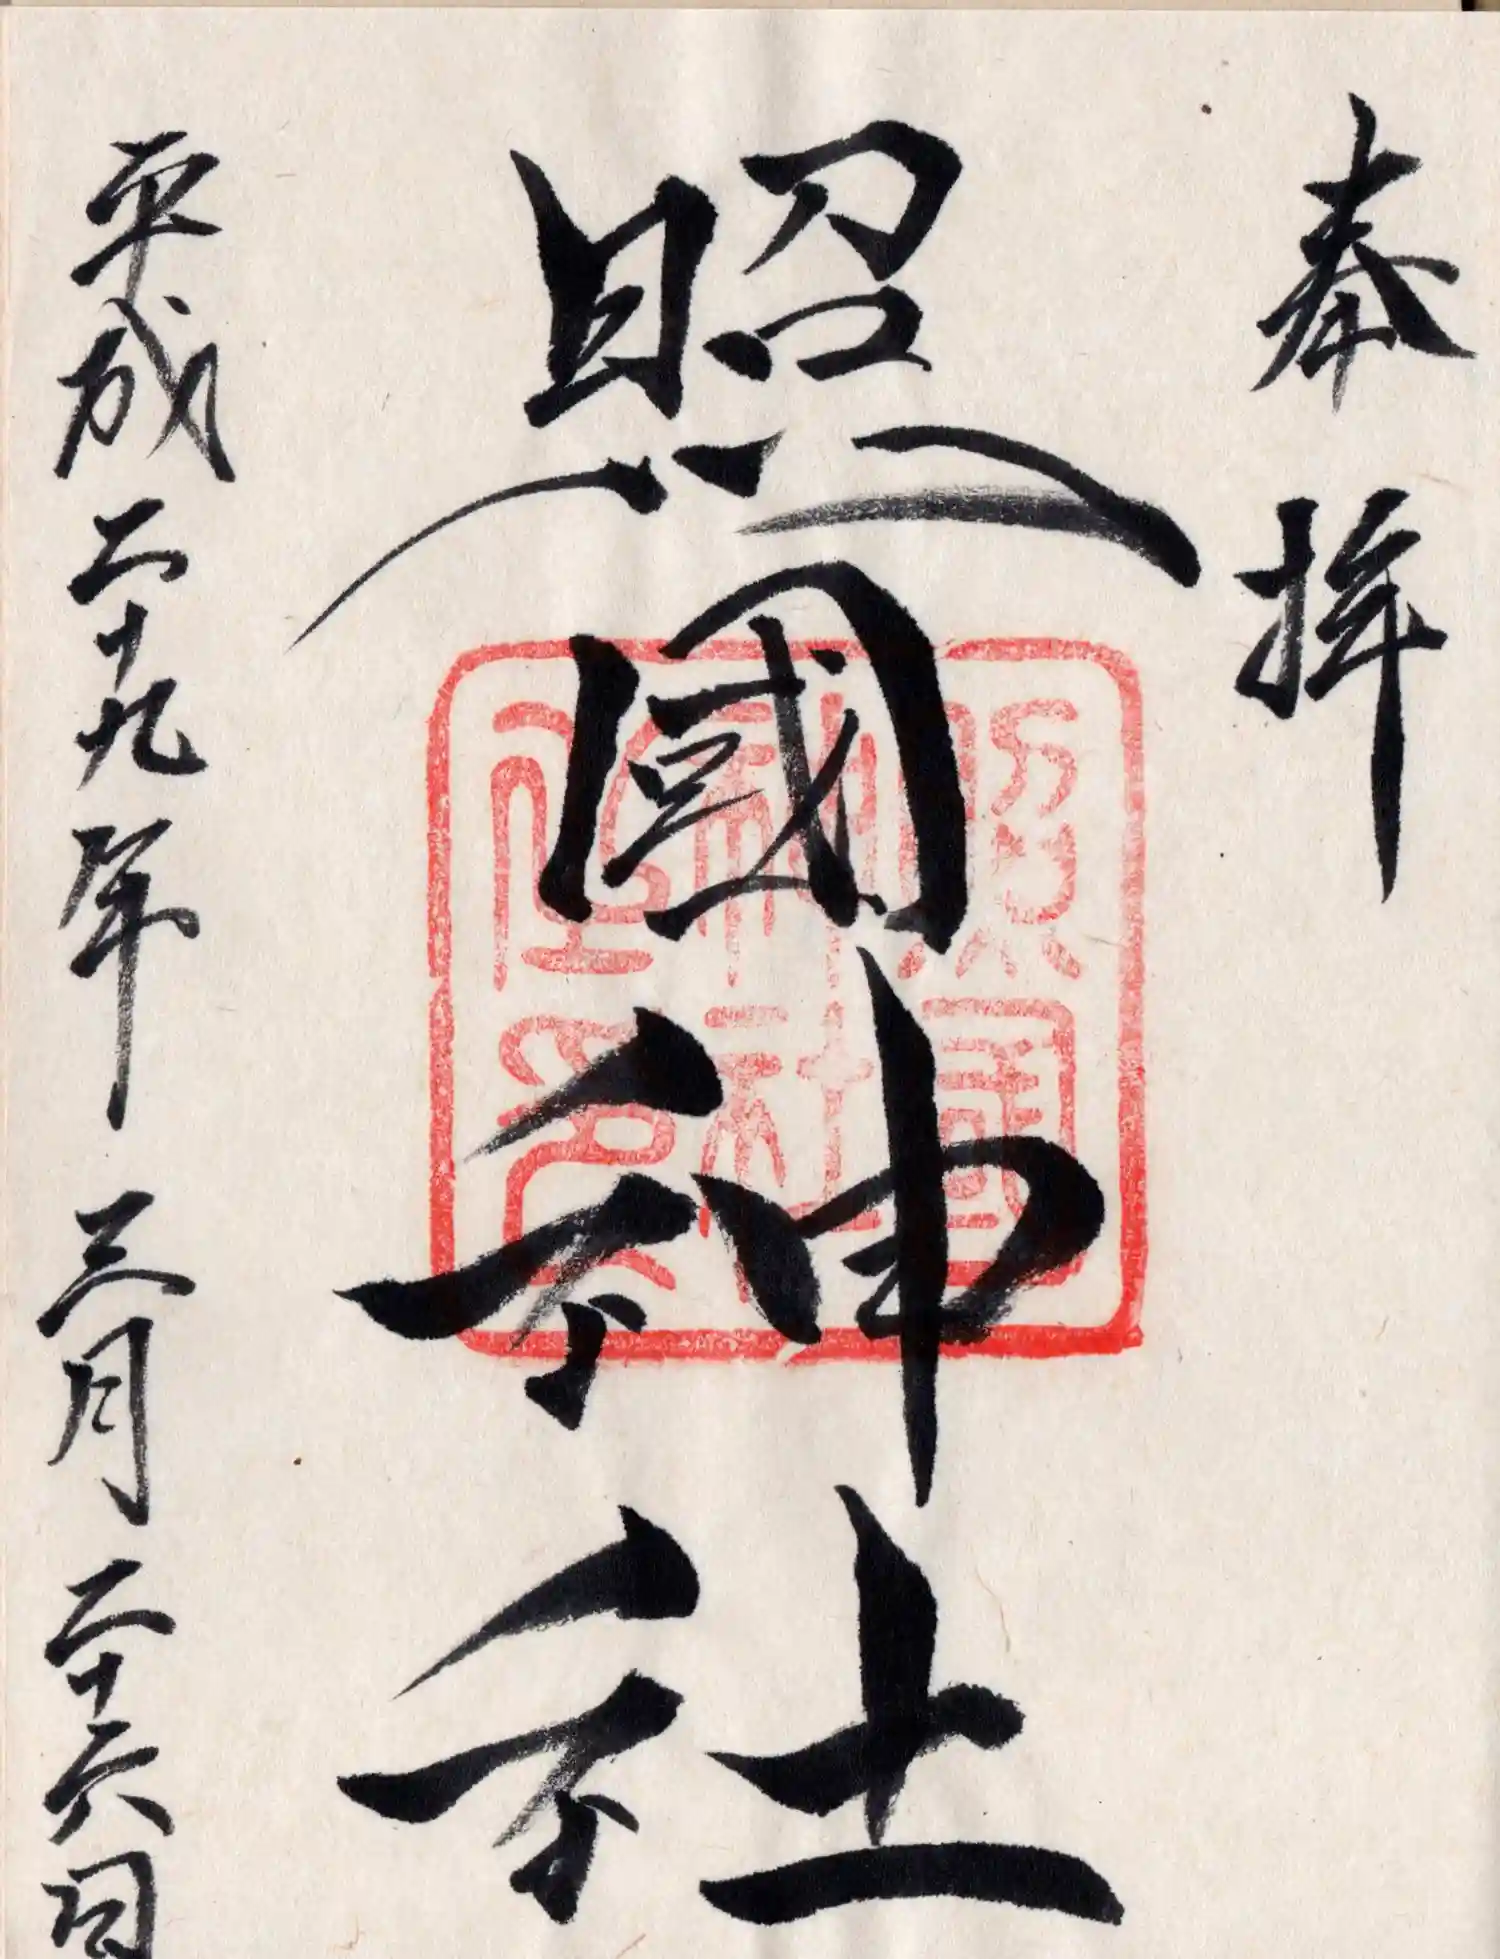 奉拝
照國神社
照國神社之印
平成二十九年三月二十六日